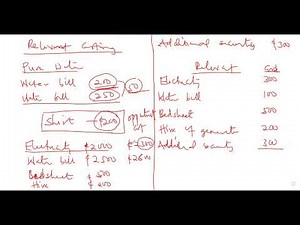 Relevant Costing
Pure Water
Water bill 200
Water bill 250 50
Shirt - ¢200 opportunity cost
Electricity ¢2000 ¢2300
Water bill ¢2500 ¢2600
Bedsheet ¢500
Hire ¢200
Additional security ¢300
Relevant Cost
Electricity 300
Water bill 100
Bedsheet 500
Hire of generator 200
Additional security 300